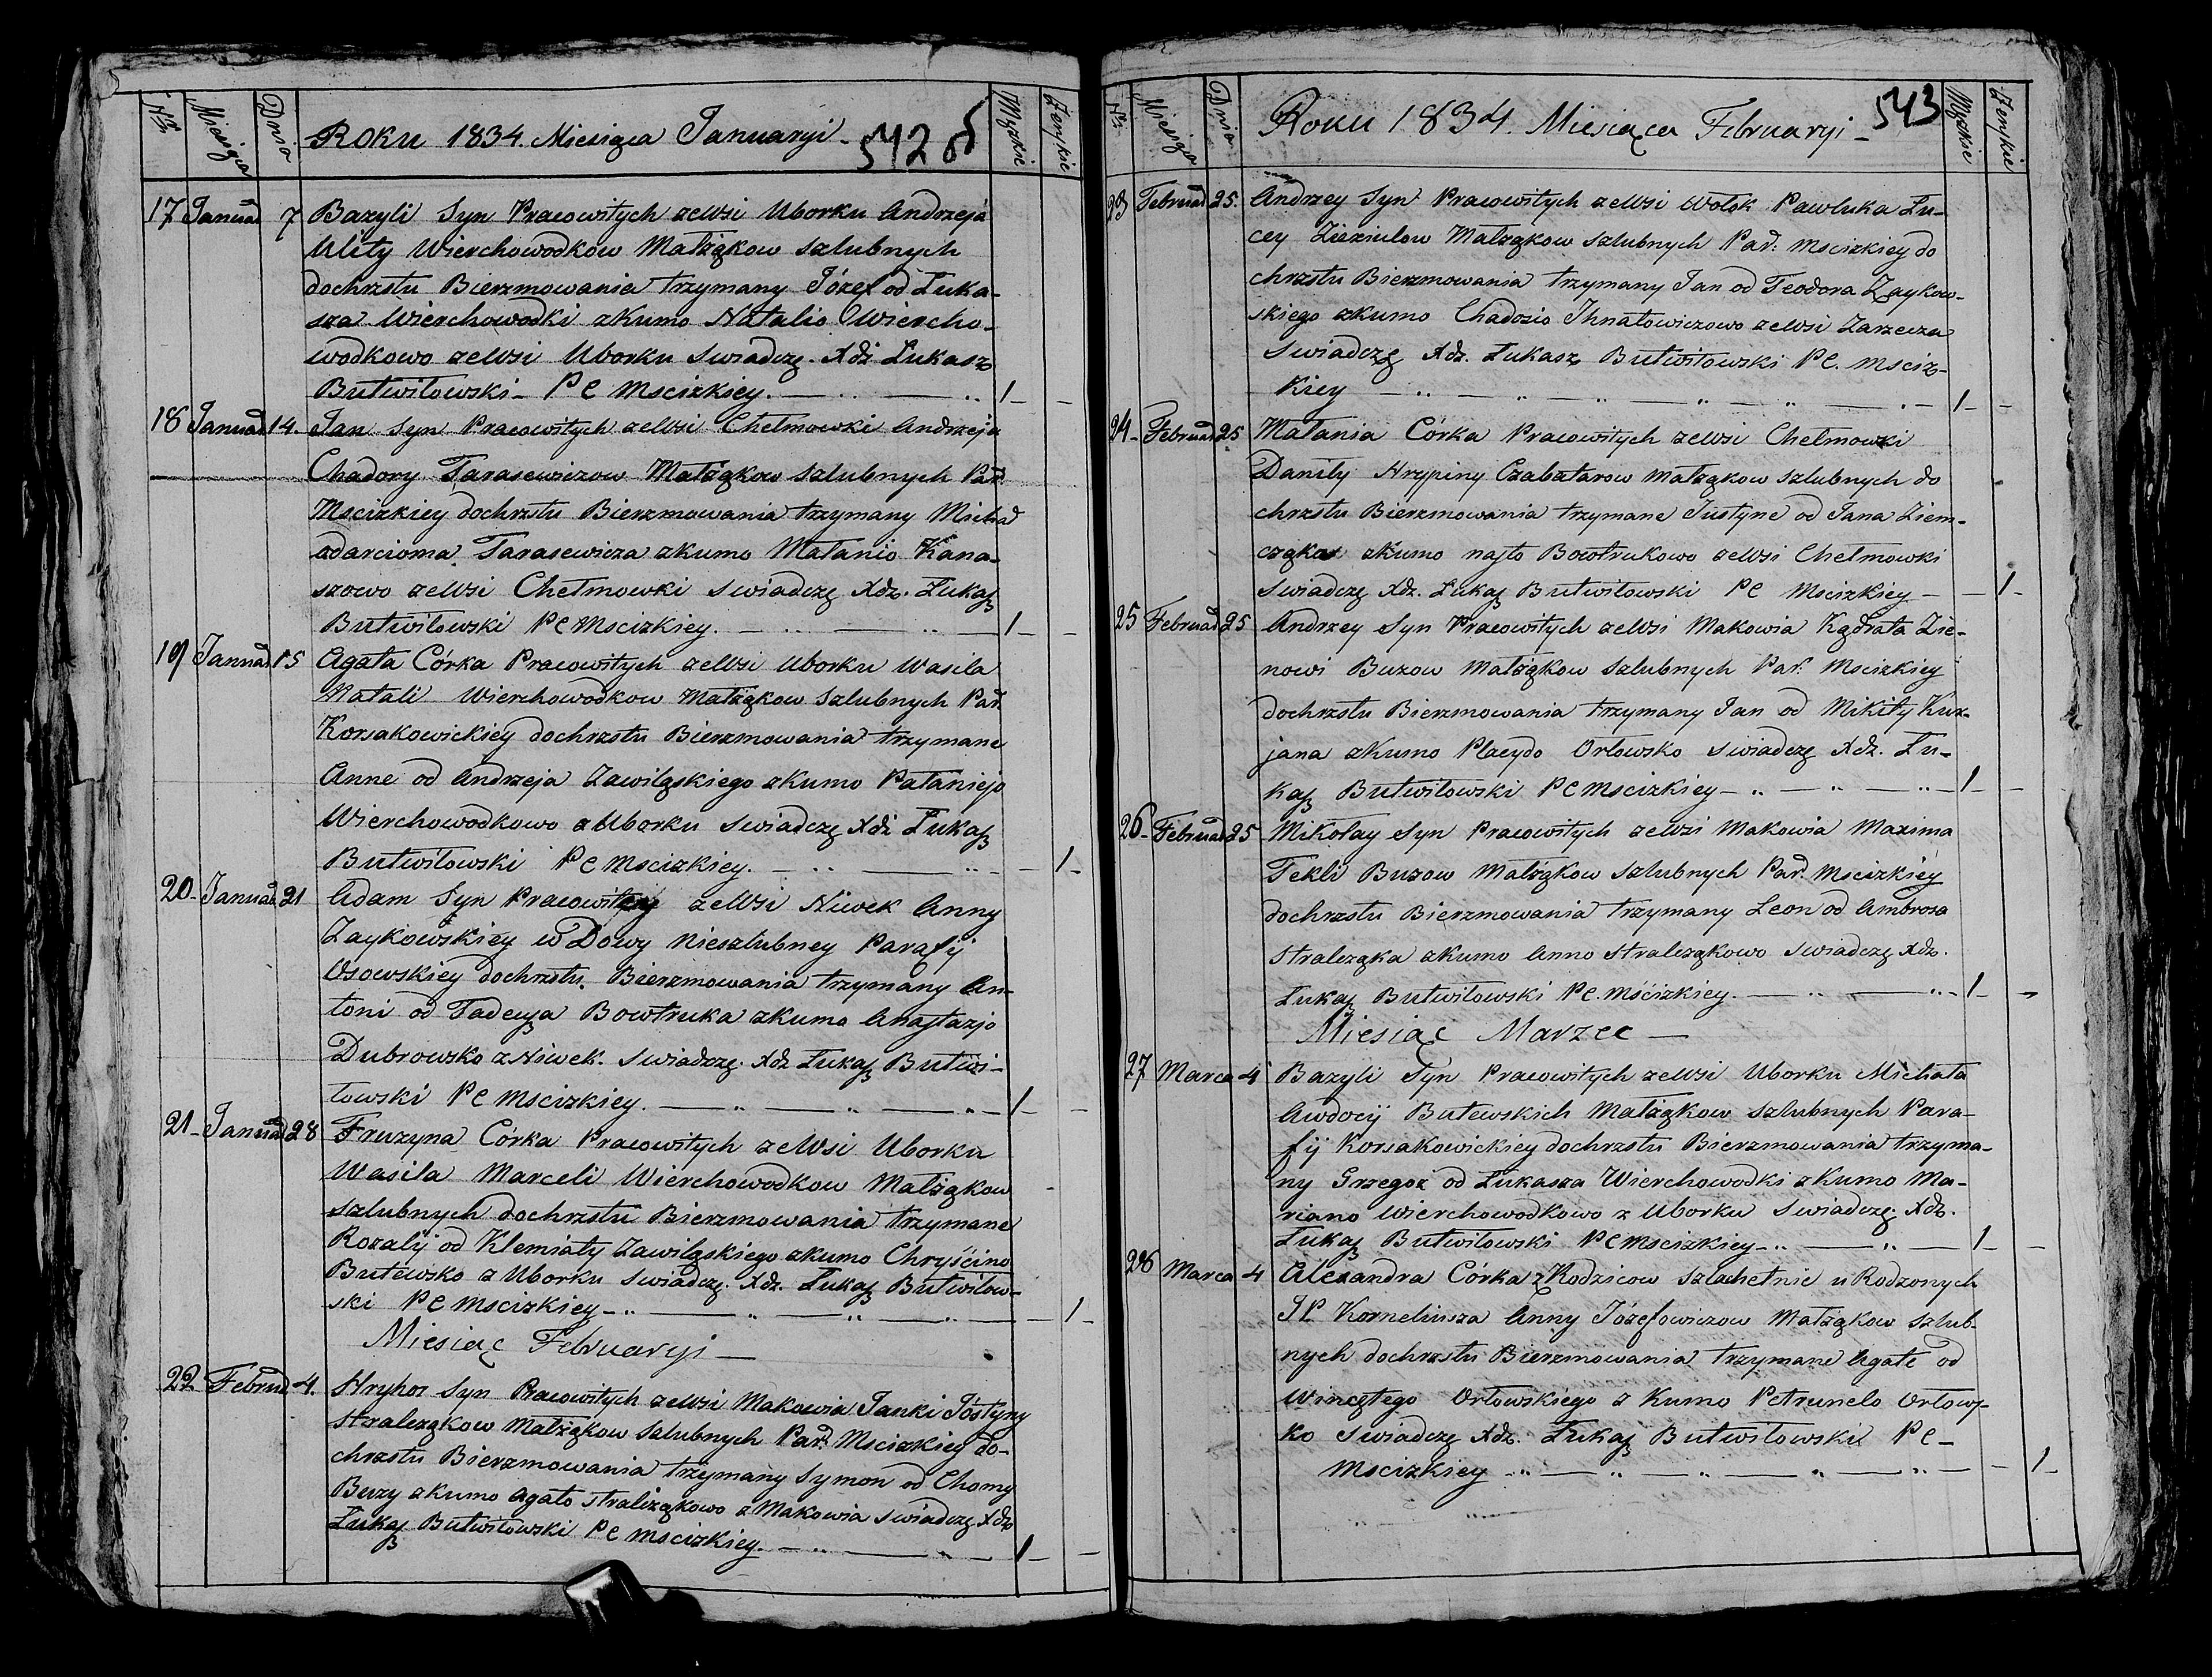 Nr. Miesiąca Dnia Roku 1834. Miesiąca Januaryi. 542 об Męzkie Zenskie
17 Januar 7 Bazyli Syn Pracowitych zeWsi Uborku Andrzeja
Ulity Wierchowodkow Małżąkow szlubnych
dochrzstu Bierzmowania trzymany Józef od Łuka-
sza Wierchowodki zkumo Natalio Wiercho-
wodkowo zeWsi Uborku swiadczę. Xdz Łukasz
Butwiłowski PC Mscizkiey. 1
18 Januar 14. Jan Syn Pracowitych zeWsi Chełmowki Andrzeja
Chadory Tarasewiczow Małżąkow szlubnych Par.
Mscizkiey dochrzstu Bierzmowania trzymany Michał
adarcioma Tarasewicza zkumo Małanio Kana-
szowo zeWsi Chełmowki swiadczę Xdz. Łukaß
Butwiłowski PC Mscizkiey. 1
19 Januar 15 Agata Córka Pracowitych zeWsi Uborku Wasila
Natali Wierchowodkow Małżąkow szlubnych Par.
Korsakowickiey dochrzstu Bierzmowania trzymane
Anne od Andrzeja Zawiląskiego zkumo Pałaniejo
Wierchowodkowo z Uborku swiadczę Xdz Łukaß
Butwiłowski PC Mscizkiey. 1
20 Januar 21 Adam Syn Pracowitey zeWsi Niwek Anny
Zaykowskiey w Dowy nieszlubney Parafij
Osowskiey dochrzstu Bierzmowania trzymany An-
toni od Tadeußa Bowtruka zkumo Anastazjo
Dubrowsko z Niwek. swiadczę. Xdz Łukaß Butwi-
łowski PC Mscizkiey. 1
21 Januar 28 Fruzyna Córka Pracowitych zeWsi Uborku
Wasila Marceli Wierchowodkow Małżąkow
szlubnych dochrzstu Bierzmowania trzymane
Rozalij od Klemiaty Zawiląskiego zkumo Chryścino
Butewsko z Uborku swiadczę. Xdz. Łukaß Butwiłow-
ski PC Mscizkiey 1
Miesiąc Februaryi
22 Februar 4. Hryhor Syn Pracowitych zeWsi Makowia Janki Jóstyny
Stralcząkow Małżąkow szlubnych Par. Mscizkiey do-
chrzstu Bierzmowania trzymany Symon od Chomy
Buzy zkumo Agato Stralcząkowo z Makowia swiadczę Xdz
Łukaß Butwiłowski PC Mscizkiey. 1
Nr. Miesiąca Dnia Roku 1834. Miesiąca Februaryi 543 Męzkie Zenskie
23 Februar 25. Andrzey Syn Pracowitych zeWsi Wołok Pawluka Łu-
cey Zieziulow Małżąkow szlubnych Par. Mscizkiey do
chrzstu Bierzmowania trzymany Jan od Teodora Zaykow-
skiego zkumo Chadosio Jhnatowiczowo zeWsi Zarzecza
swiadczę Xdz. Łukasz Butwiłowski PC. Msciz-
kiey 1
24 Februar 25 Małania Córka Pracowitych zeWsi Chełmowki
Daniły Hrypiny Czabatarow małżąkow szlubnych do
chrzstu Bierzmowania trzymane Justyne od Jana Ziem-
cząka zkumo nasto Bowtrukowo zeWsi Chełmowki
swiadczę Xdz. Łukaß Butwiłowski PC Mscizkiey 1
25 Februar 25 Andrzey Syn Pracowitych zeWsi Makowia Kądrata Zie-
nowi Buzow Małżąkow szlubnych Par. Mscizkiey
dochrzstu Bierzmowania trzymany Jan od Mikity Kuz-
jana zkumo Placydo Orłowsko swiadczę Xdz. Łu-
kaß Butwiłowski PC Mscizkiey 1
26 Februar 25 Mikołay Syn Pracowitych zeWsi Makowia Maxima
Tekli Buzow Małżąkow szlubnych Par. Mscizkiey
dochrzstu Bierzmowania trzymany Leon od Ambrosa
Stralcząka zkumo Anno Stralcząkowo swiadczę Xdz.
Łukaß Butwiłowski PC. Mścizkiey. 1
Miesiąc Marzec
27 Marca 4 Bazyli Syn Pracowitych zeWsi Uborku Michała
Awdocij Butewskich Małżąkow szlubnych Para-
fij Korsakowickiey dochrzstu Bierzmowania trzyma-
ny Grzegoz od Łukasza Wierchowodki zkumo Ma-
riano Wierchowodkowo z Uborku swiadczę. Xdz.
Łukaß Butwiłowski PC Mscizkiey 1
28 Marca 4 Alexandra Córka zRodzicow szlachetnie uRodzonych
JP Korneliusza Anny Józefowiczow Małżąkow szlub-
nych dochrzstu Bierzmowania trzymane Agate od
Wincętego Orłowskiego z Kumo Petrunelo Orłows-
ko swiadczę Xdz. Łukaß Butwiłowski PC
Mscizkiey 1